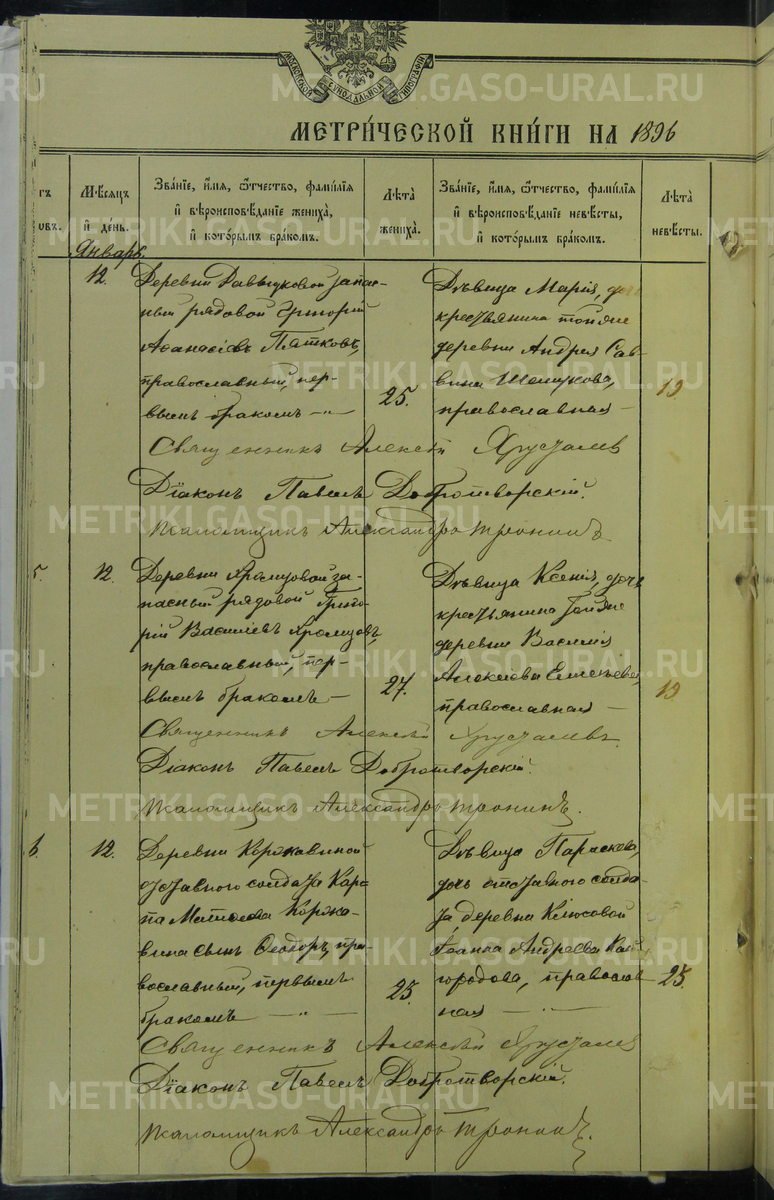 МОСКОВСКОЙ СѴНОДАЛЬНОЙ ТИПОГРАФІИ
МЕТРИ́ЧЕСКОЙ КНИ́ГИ НА 1896
Мѣ́сѧцъ
и҆ де́нь.
Зва́нїе, и҆́мѧ, ѻ҆́тчество, фамі́лїѧ
и҆ вѣроисповѣ́данїе жениха̀,
и҆ кото́рымъ бра́комъ.
Лѣ́та
жениха̀.
Зва́нїе, и҆́мѧ, ѻ҆́тчество, фамі́лїѧ
и҆ вѣроисповѣ́данїе невѣ́сты,
и҆ кото́рымъ бра́комъ.
Лѣ́та
невѣ́сты.
Январь.
12.
Деревни Давыдковой запас-
ный рядовой Григорій
Аѳанасіевъ Пятковъ,
православный, пер-
вымъ бракомъ —"—
25.
Дѣвица Марія, дочь
крестьянина той же
деревни Андрея Сав-
вина Шелудкова,
православная —
19
Священникъ Алексѣй Хрусталев
Діаконъ Павелъ Добротворскій.
Псаломщикъ Александръ Тронинъ
5.
12.
Деревни Храмцовой за-
пасный рядовой Григо-
рій Василіевъ Храмцовъ,
православный, пер-
вымъ бракомъ —
27.
Дѣвица Ксенія, дочь
крестьянина той же
деревни Василія
православная —
19
Священникъ Алексѣй Хрусталевъ.
Діаконъ Павелъ Добротворскій.
Псаломщикъ Александръ Тронинъ.
6.
12.
Деревни Коржавиной
отставного солдата Кар-
па Матѳіева Коржа-
вина сынъ Ѳеодоръ, пра-
вославный, первымъ
бракомъ —"—
23.
Дѣвица Параскева,
дочь отставного солда-
та деревни Клюсовой
Іоанна Андреева Кай-
городова, православ-
ная —"—
25.
Священникъ Алексѣй Хрусталев
Діаконъ Павелъ Добротворскій.
Псаломщикъ Александръ Тронинъ.
METRIKI.GASO-URAL.RU